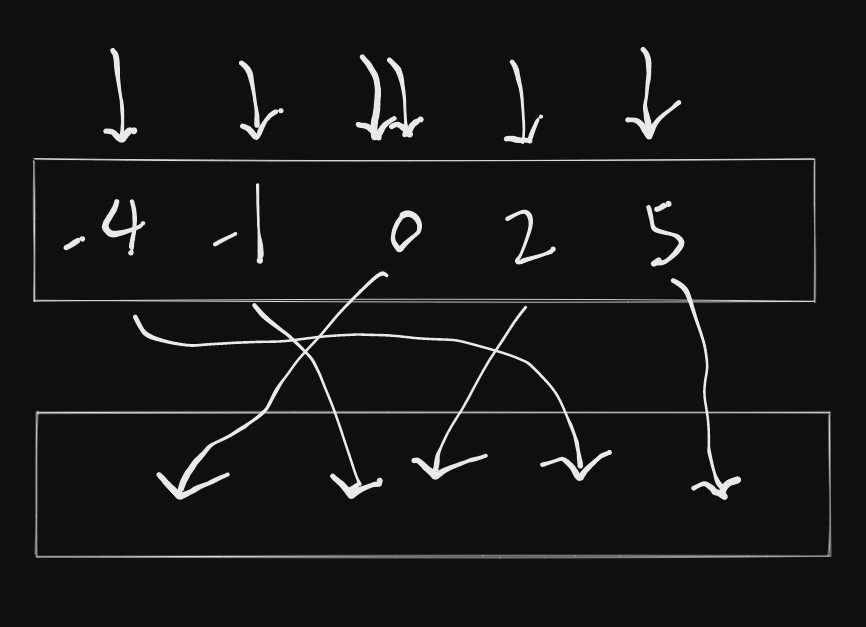 -4 -1 0 2 5